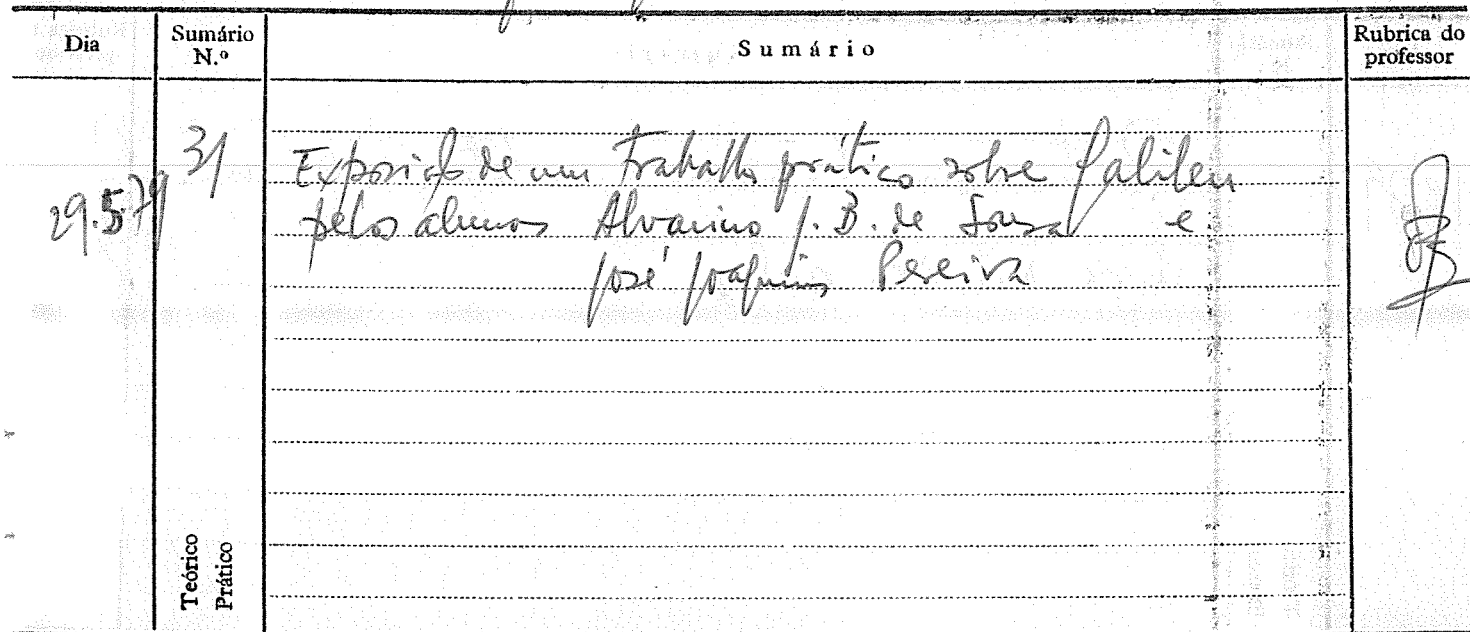 Dia
Sumário N.º
Sumário
Rubrica do professor
29.5.79
31
Exposição de um trabalho prático sobre Galileu
pelos alunos Alvarino J. B. de Sousa e
José Joaquim Pereira
Teórico
Prático